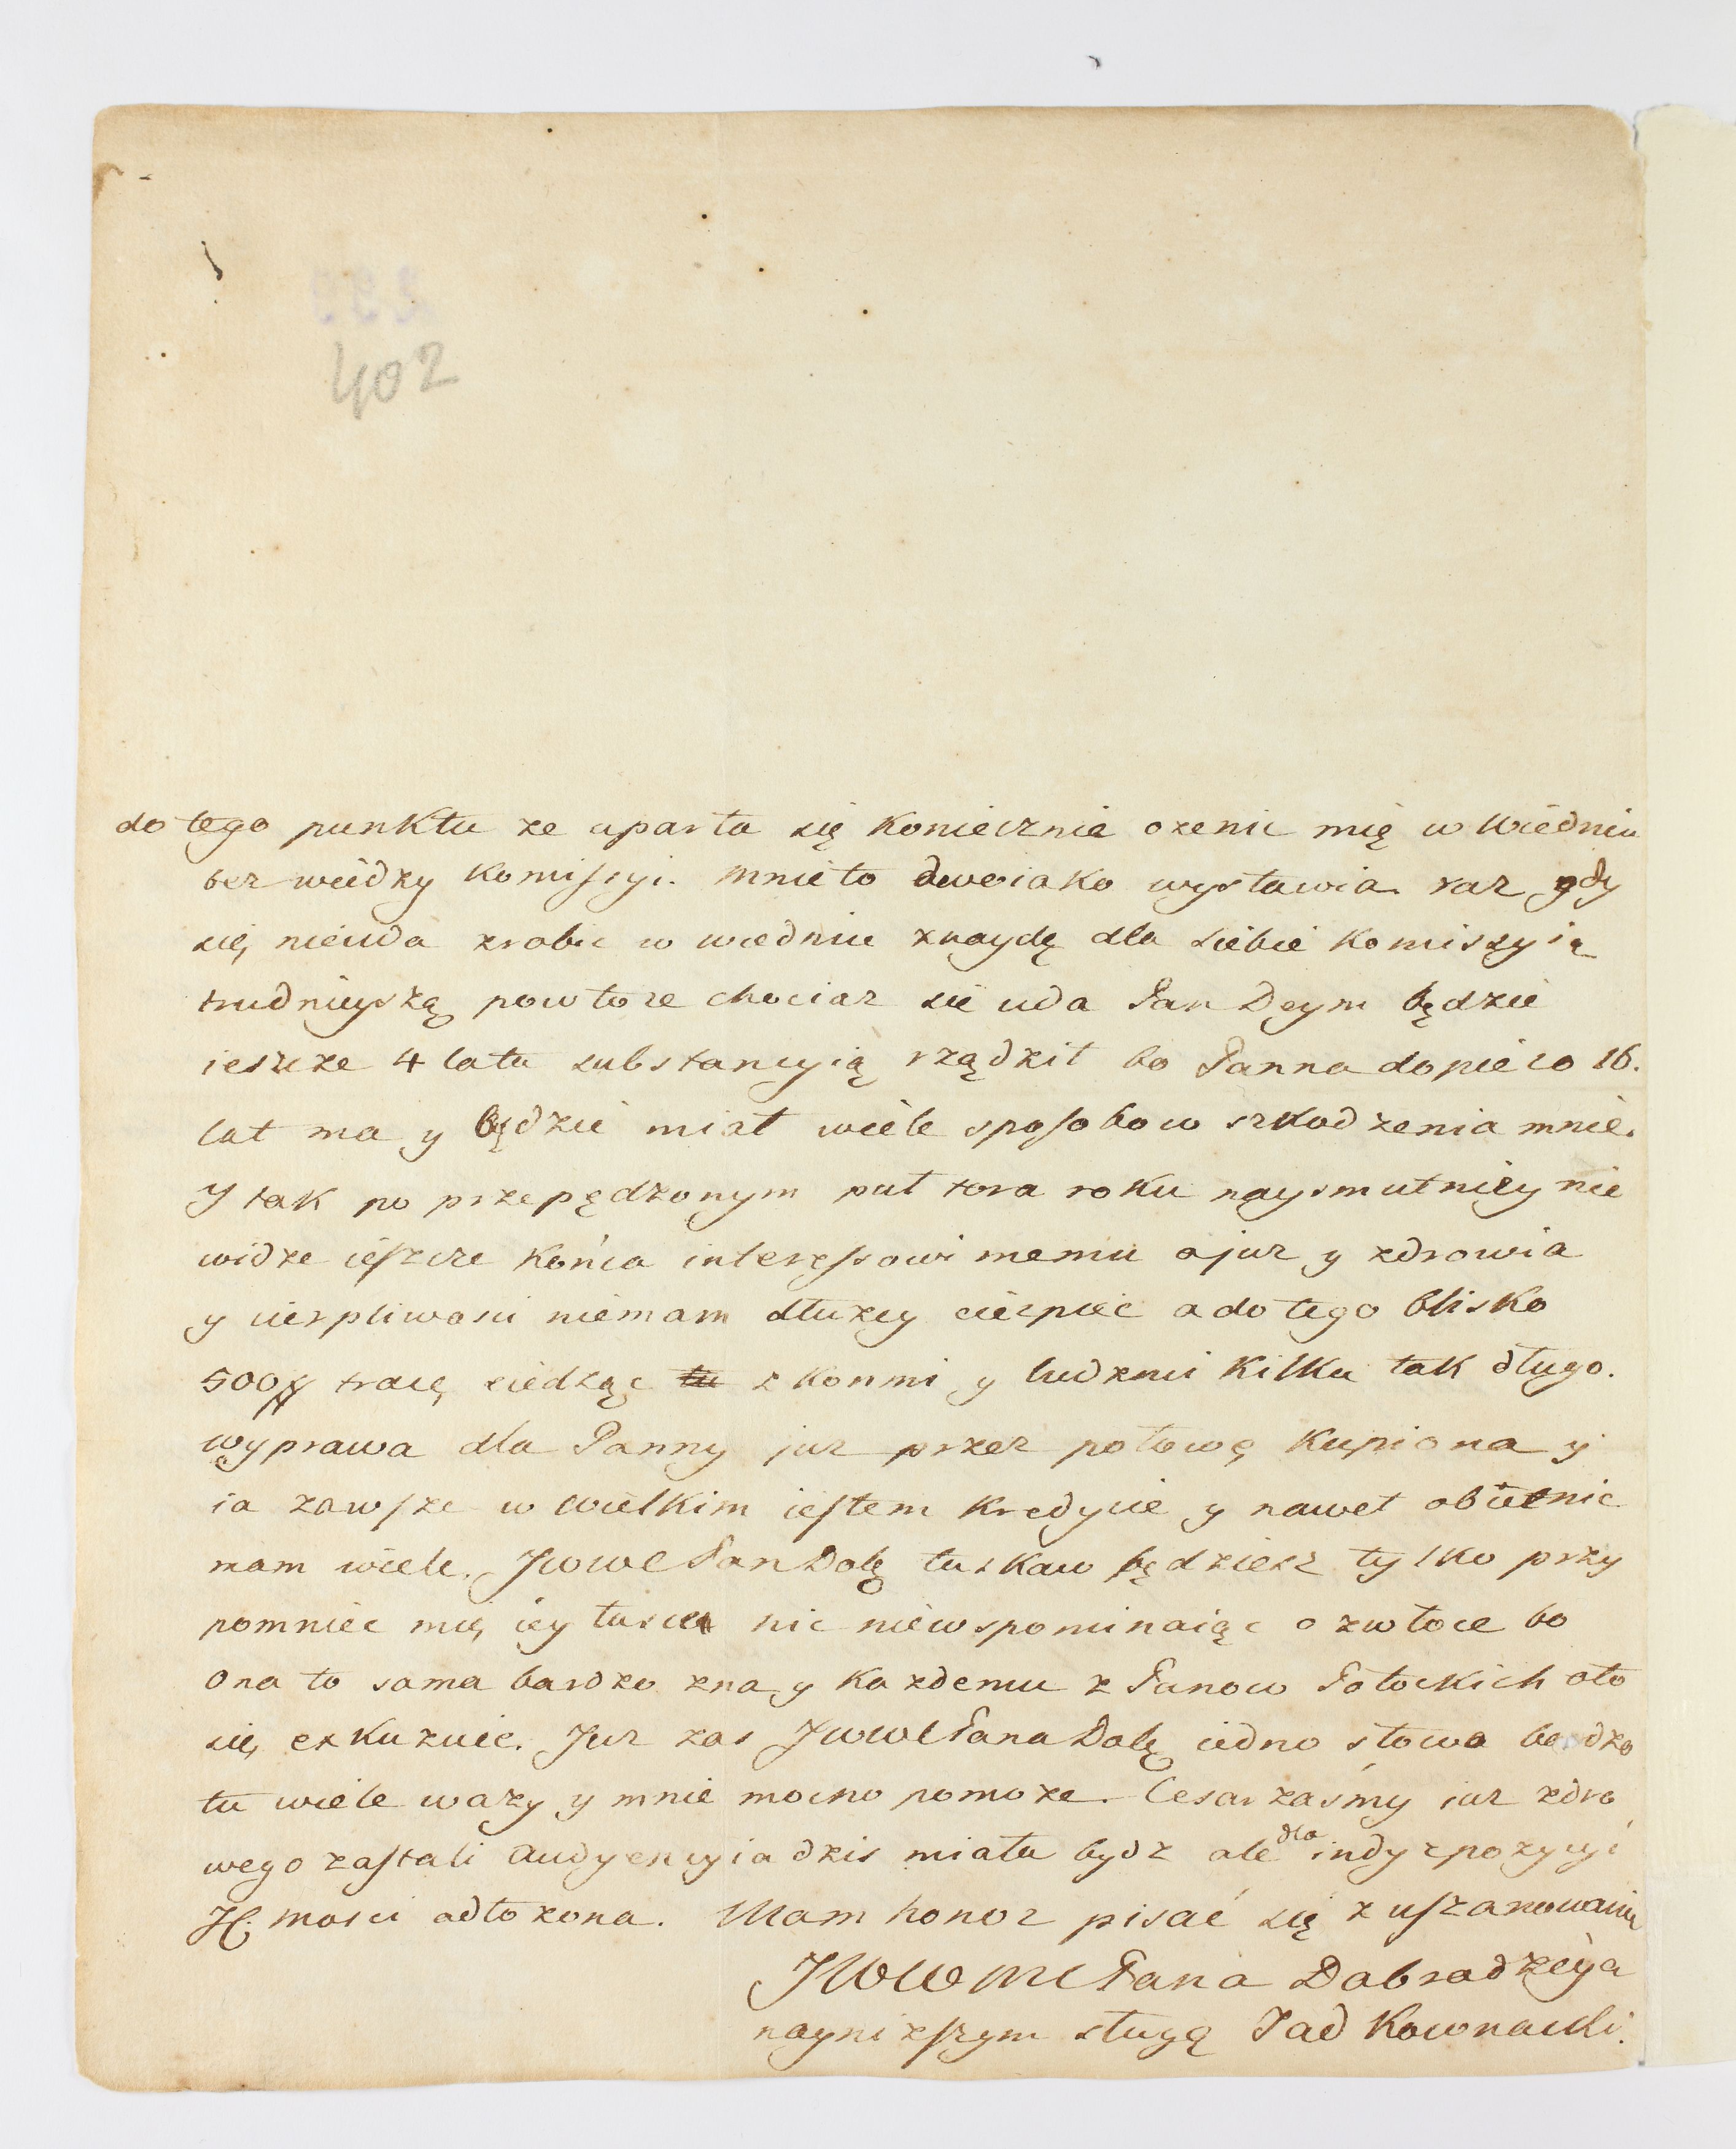 402
do tego punktu ze uparta się koniecznie ozenic mię w Wiedniu
bez wiedzy Komissyi. mnie to dwoiako wystawia. raz gdy
się nieuda zrobic w wiedniu znaydę dla siebie Komiszyią
trudnieyszą powtore chociaz sie uda Pan Deym będzie
ieszcze 4 lata substancyią rządzit bo Panna dopiero 16.
lat ma y będzie miat wiele sposobow szkodzenia mnie.
Y tak po przepędzonym put tora roku naysmutniey nie
widze ieszcze Końca interessowi memu a juz y zdrowia
y cierpliwosci niemam dłuzey cierpiec a do tego blisko
500 tracę siedząc tu z konmi y ludzmi kilku tak długo.
wyprawa dla Panny juz przez potowę kupiona y
ia zawsze w wielkim iestem Kredycie y nawet obietnic
mam wiele. JWWC Pan Dobę łaskaw będziesz tylko przy
pomniec mię iey łasce nic niewspominaiąc o zwłoce bo
Ona to sama bardzo zna y kazdemu z Panow Potockich oto
się exkuzuie. Juz zas JWWC Pana Dobę iedno słowo bardzo
tu wiele wazy y mnie mocno pomoze. Cesarzaśmy iuz zdro
wego zastali audyencyia dzis miała bydz ale dla indyzpozycyi
J C. mosci odłozona. Mam honor pisać się z uszanowaniem
JWW MC Pana Dobrodzieja
nayniższym sługą Tad Kownacki.